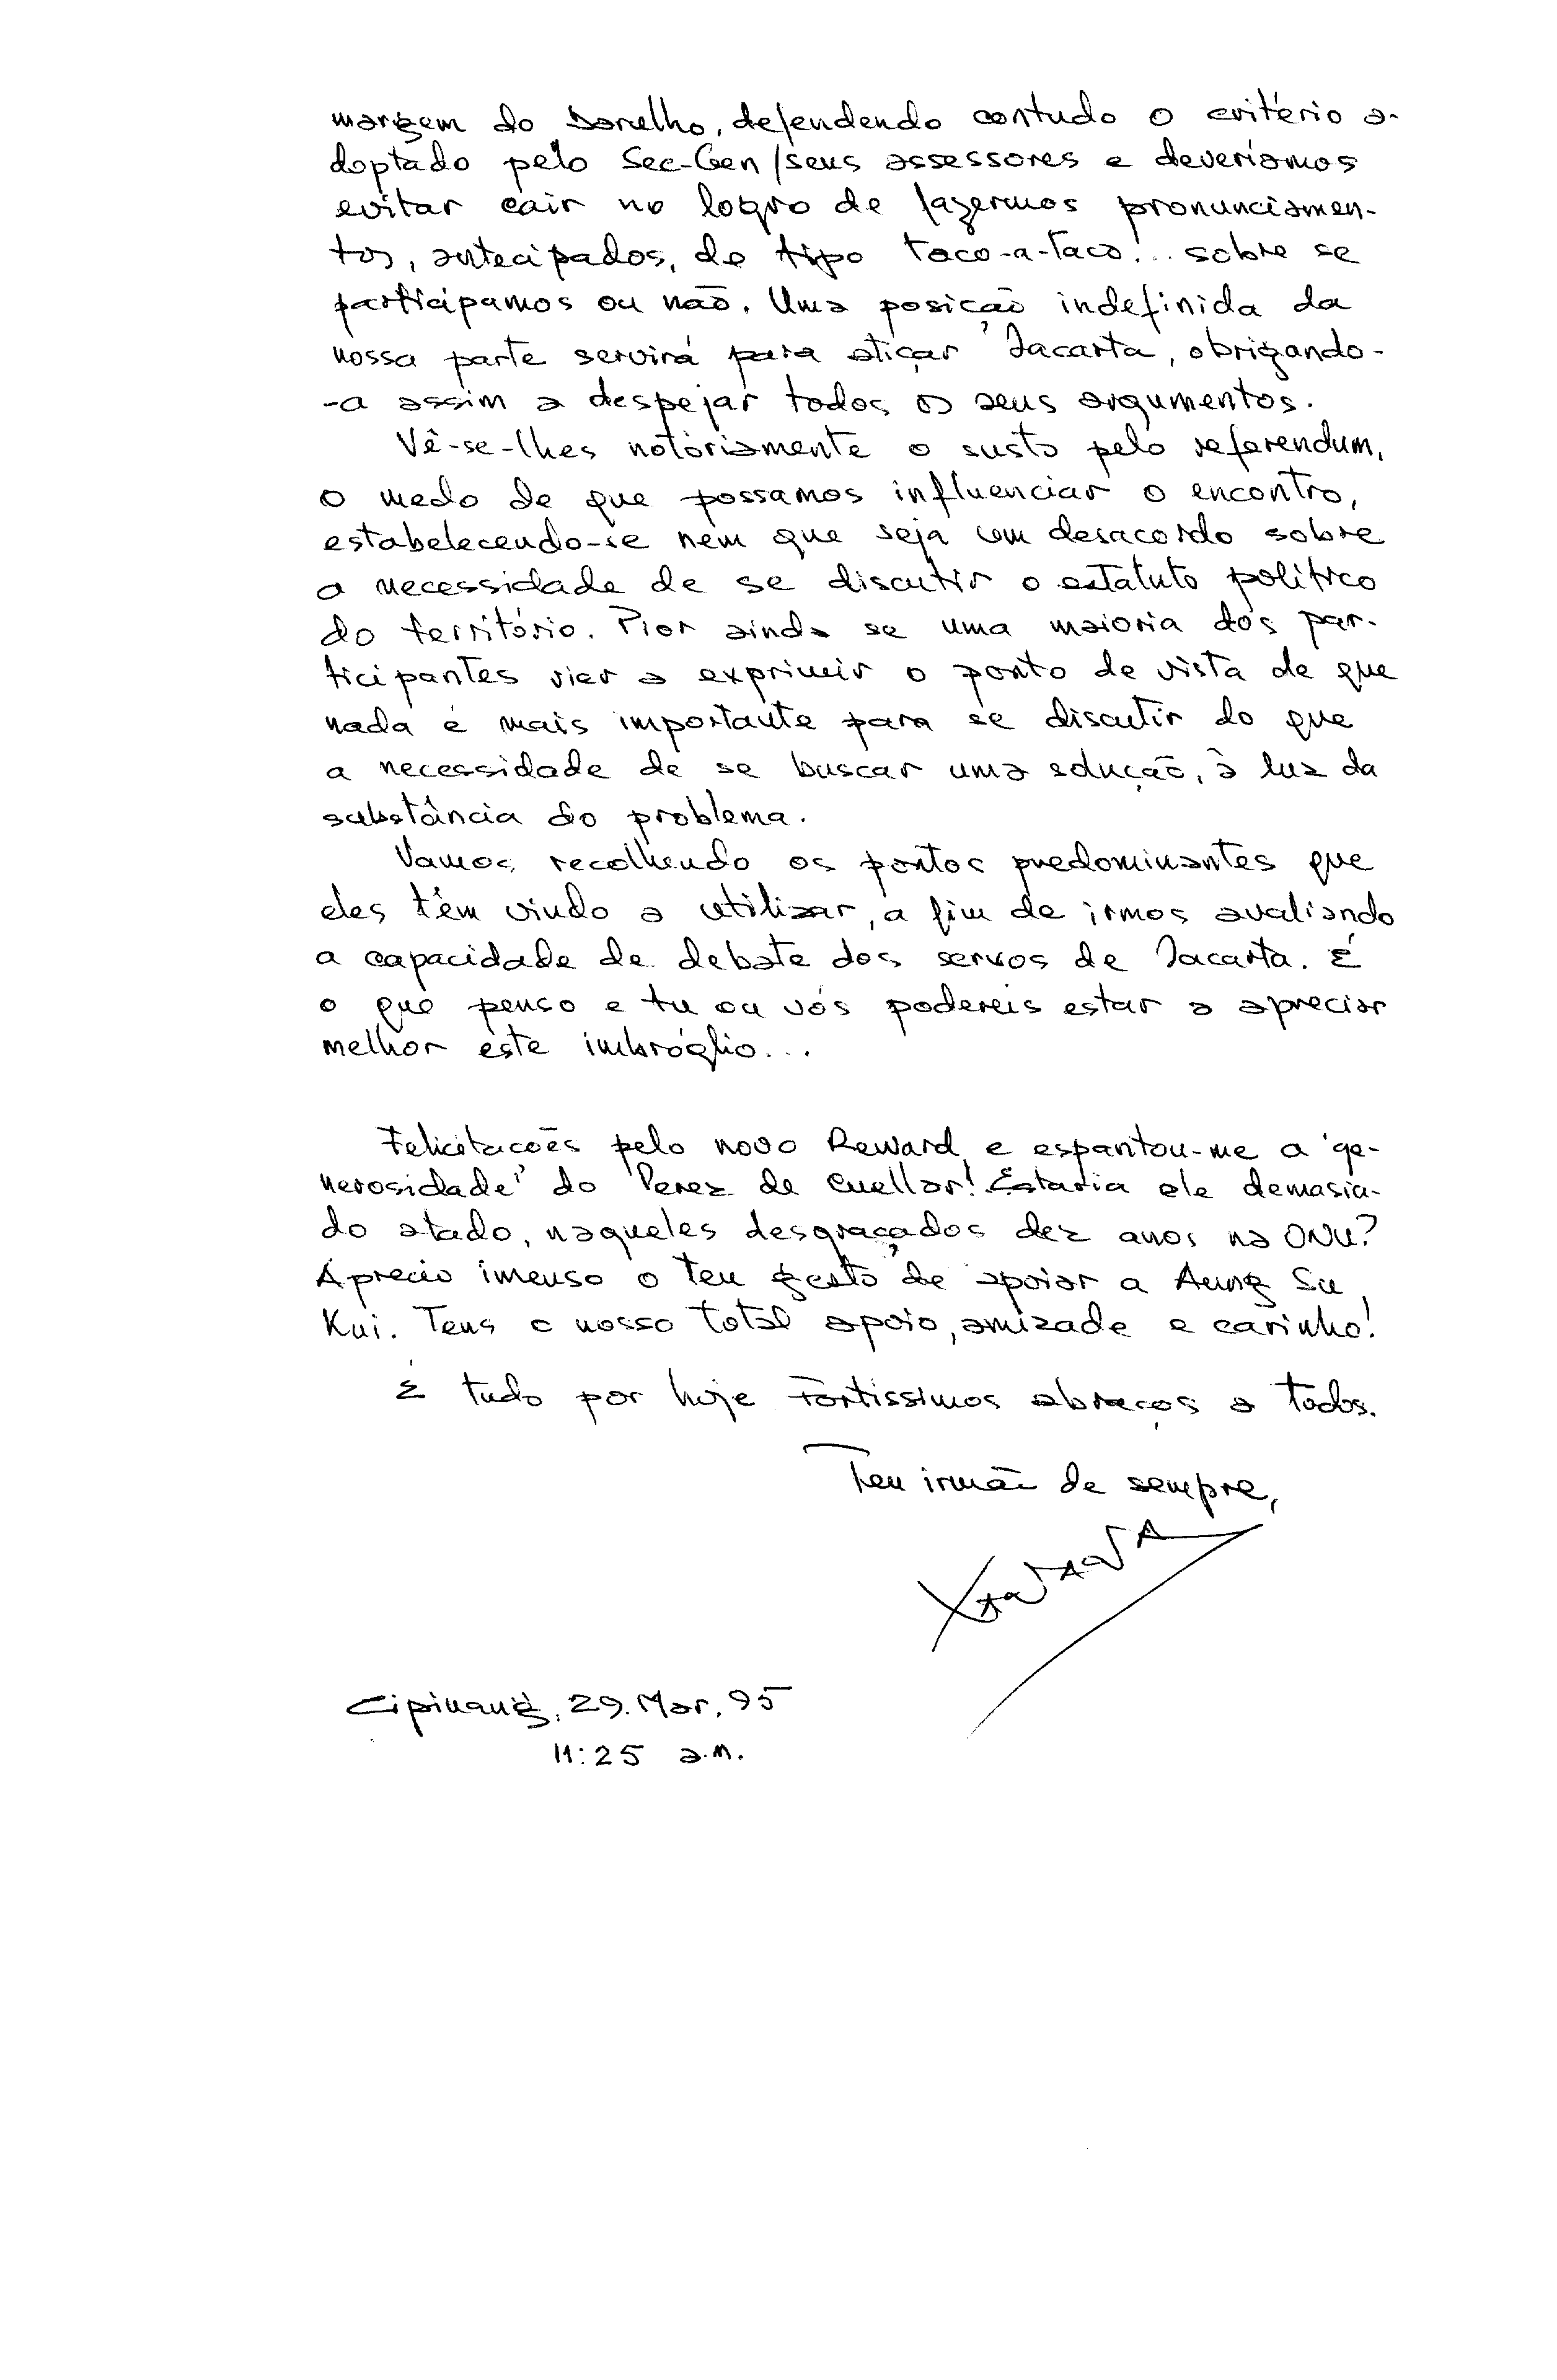 margem do barulho, defendendo contudo o critério a-
doptado pelo Sec-Gen/seus assessores e deveríamos
evitar cair no logro de fazermos pronunciamen-
tos, antecipados, de tipo taco-a-taco!.. sobre se
participamos ou não. Uma posição indefinida da
nossa parte servirá para atiçar Jacarta, obrigando-
-a assim a despejar todos os seus argumentos.
Vê-se-lhes notóriamente o susto pelo referendum,
o medo de que possamos influenciar o encontro,
estabelecendo-se nem que seja um desacordo sobre
a necessidade de se discutir o estatuto político
do território. Pior ainda se uma maioria dos par-
ticipantes vier a exprimir o ponto de vista de que
nada é mais importante para se discutir do que
a necessidade de se buscar uma solução, à luz da
substância do problema.
Vamos recolhendo os pontos predominantes que
eles têm vindo a utilizar, a fim de irmos avaliando
a capacidade de debate dos servos de Jacarta. É
o que penso e tu ou vós podereis estar a apreciar
melhor este imbróglio...
Felicitações pelo novo Reward e espantou-me a 'ge-
nerosidade' do Perez de Cuellar! Estaria ele demasia-
do atado, naqueles desgraçados dez anos na ONU?
Aprecio imenso o teu gesto de apoiar a Aung Su
Kui. Tens o nosso total apoio, amizade e carinho!
É tudo por hoje Fortíssimos abraços a todos.
Teu irmão de sempre,
Xanana
Cipinang, 29. Mar. 95
11:25 a.m.